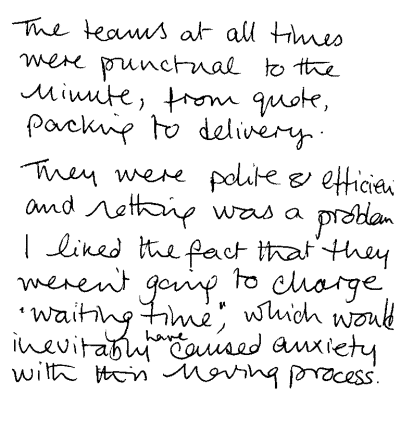 The teams at all times
were punctual to the
minute, from quote,
packing to delivery.
They were polite & efficien
and nothing was a problem
I liked the fact that they
weren't going to charge
"waiting time", which would
inevitably have caused anxiety
with this moving process.